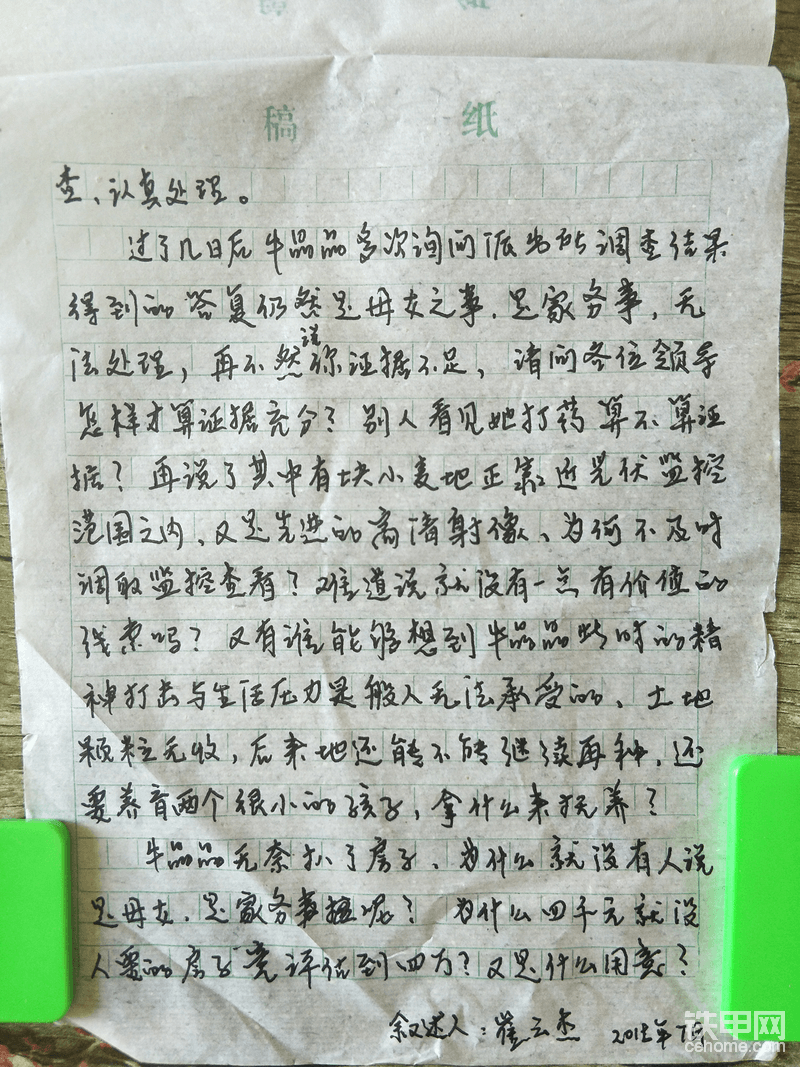 稿 纸
查、认真处理。
过了几日后牛品品多次询问派出所调查结果
得到的答复仍然是母女之事.是家务事,无
法处理,再不然说你证据不足,请问各位领导
怎样才算证据充分?别人看见她打药算不算证
据?再说了其中有块小麦地正靠近光伏监控
范围之内、又是先进的高清射像、为何不及时
调取监控查看?难道说就没有一点有价值的
线索吗?又有谁能够想到牛品品此时的精
神打击与生活压力是般人无法承受的、土地
颗粒无收,后来地还能不能继续再种,还
要养育两个很小的孩子,拿什么来抚养?
牛品品无奈扒了房子、为什么就没有人说
是母女.是家务事呢?为什么四千元就没
人要的房子竟评估到四万?又是什么用意?
叙述人:崔云杰
铁甲网
cehome.com